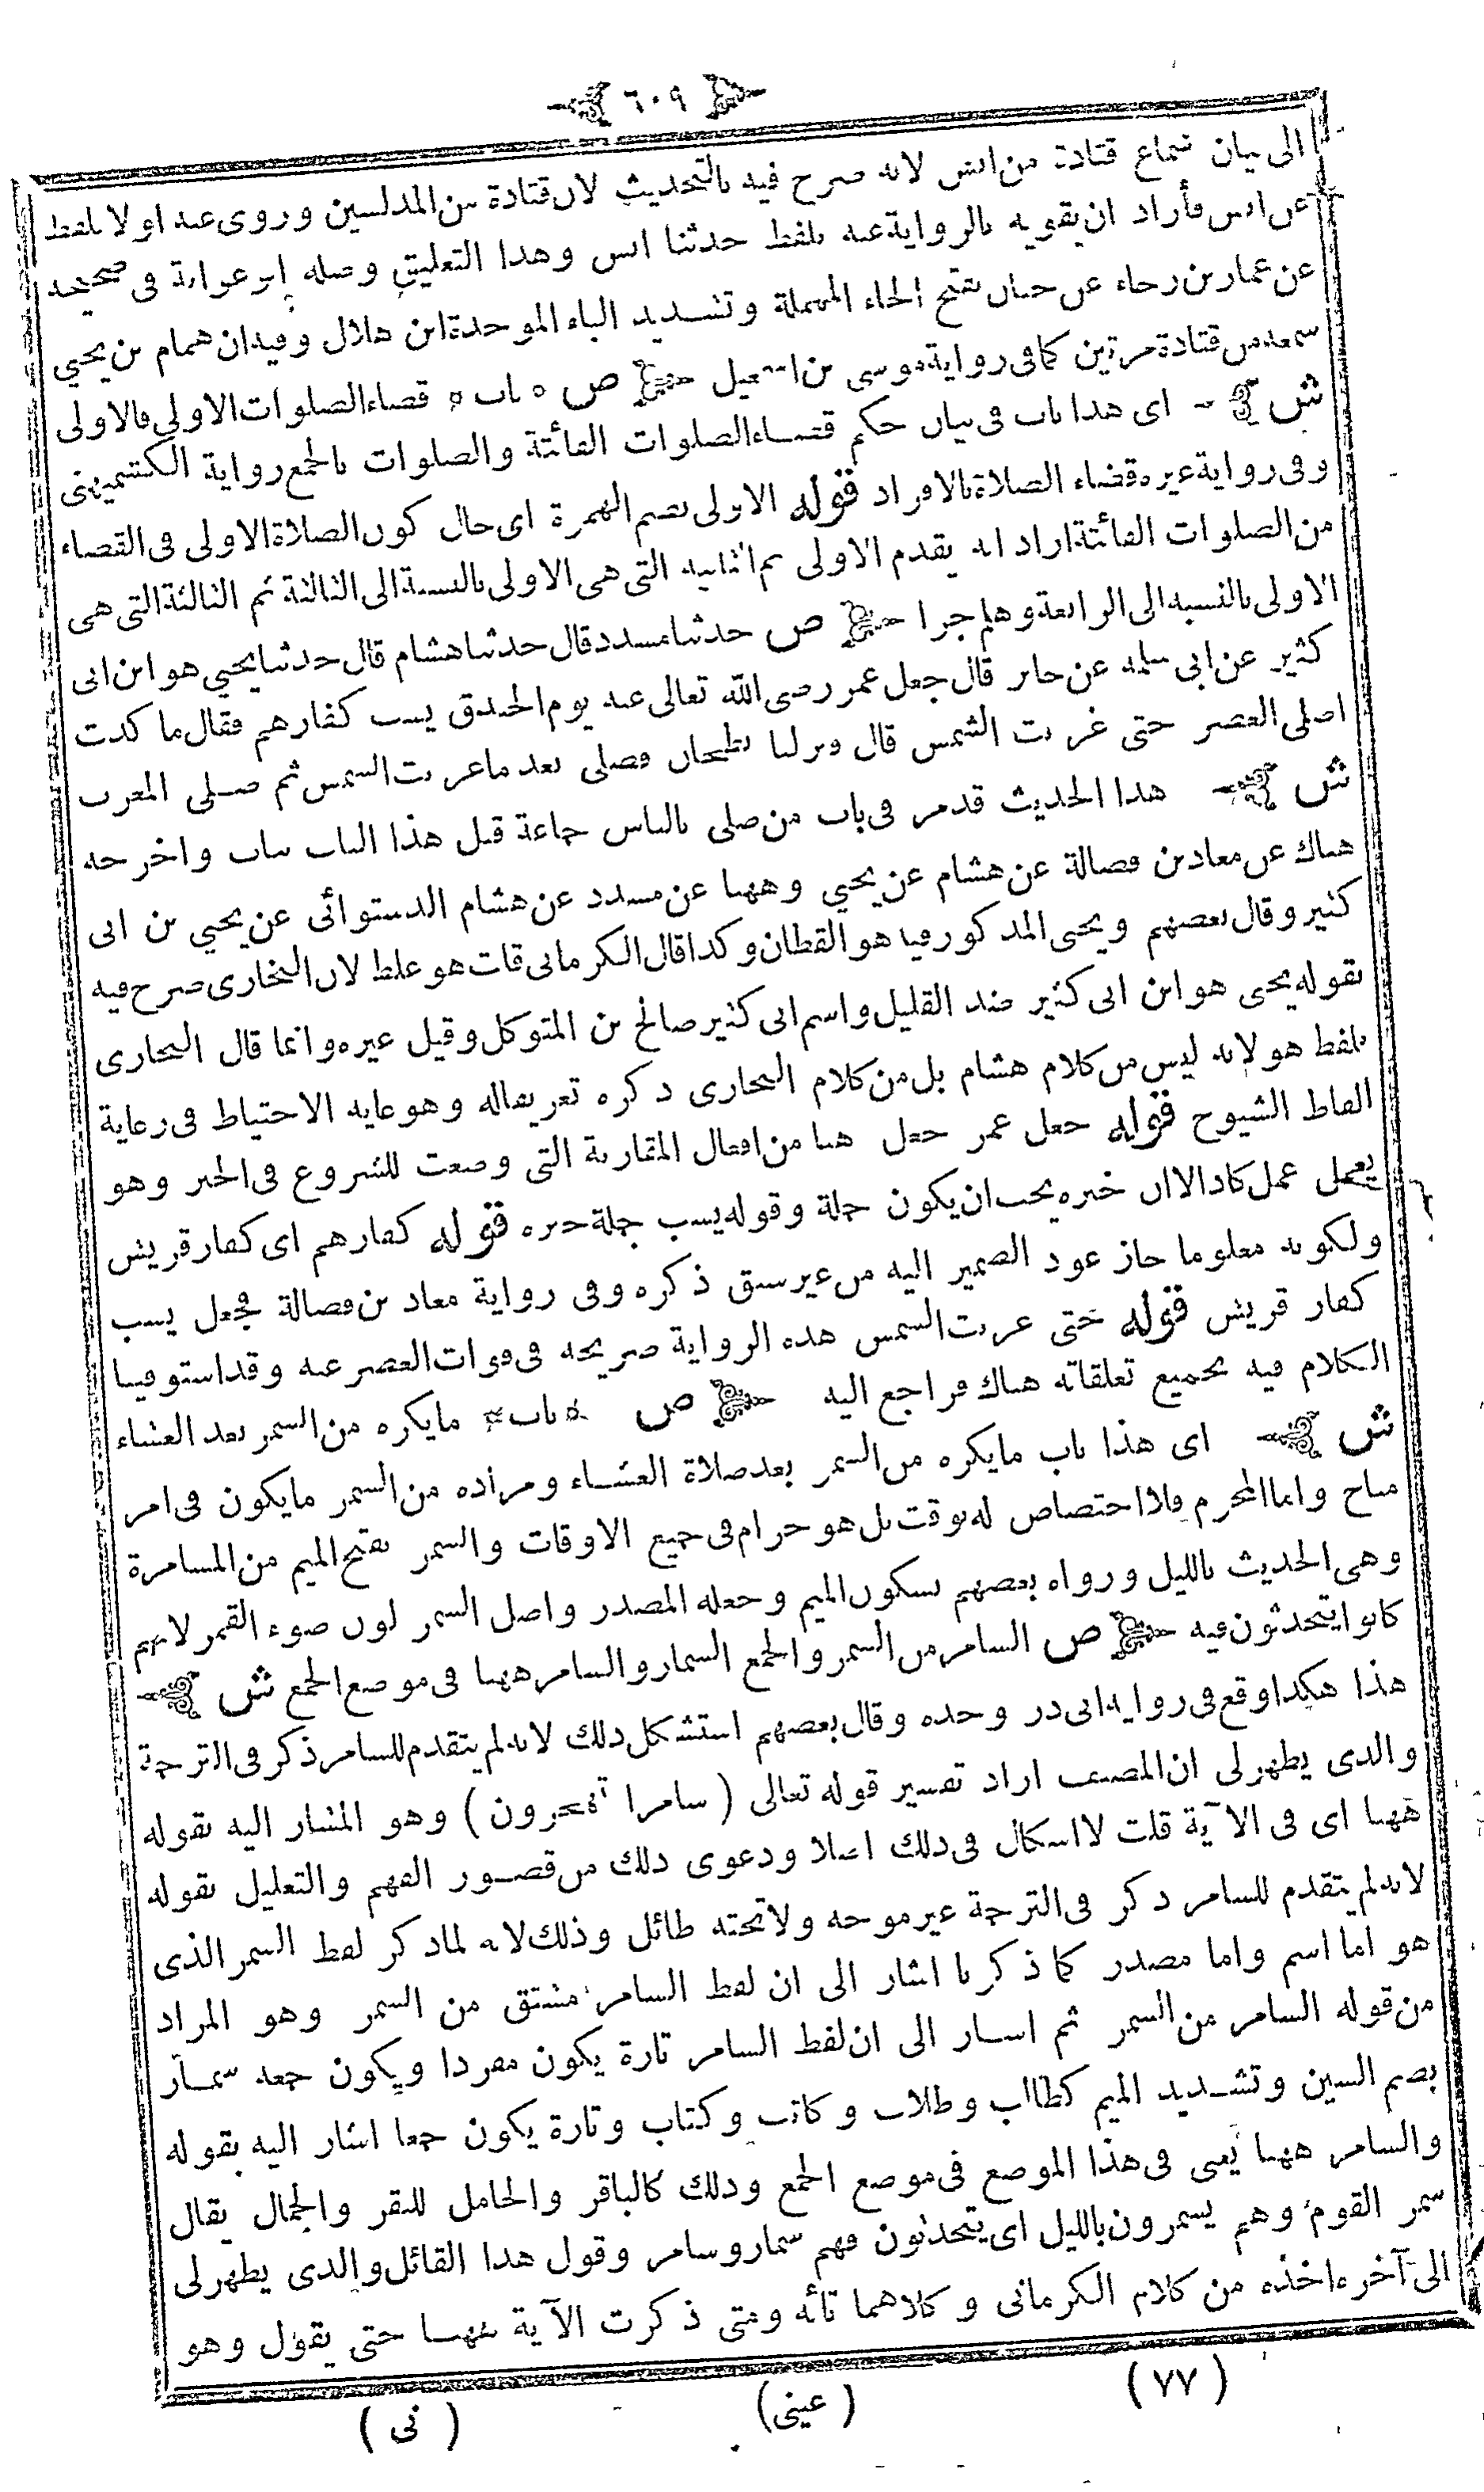 ٦٠٩
الى بيان سماع قتادة من انس لانه صرح فيه بالتحديث لان قتادة من المدلسين وروى عنه اولا بلفظ
عن انس فأراد ان يقويه بالرواية عنه بلفظ حدثنا انس وهذا التعليق وصله ابو عوانة فى صحيحه
عن عمار بن رجاء عن حبان بفتح الحاء المهملة وتشديد الباء الموحدة ابن هلال وفيه ان همام بن يحيى
سمعه من قتادة مرتين كما فى رواية موسى بن اسمعيل ص باب قضاء الصلوات الاولى فالاولى
ش اى هذا باب فى بيان حكم قضاء الصلوات الفائتة والصلوات بالجمع رواية الكشميهنى
وفى رواية غيره قضاء الصلاة بالافراد قوله الاولى بضم الهمزة اى حال كون الصلاة الاولى فى القضاء
من الصلوات الفائتة اراد انه يقدم الاولى ثم الثانية التى هى الاولى بالنسبة الى الثالثة ثم الثالثة التى هى
الاولى بالنسبة الى الرابعة وهلم جرا ص حدثنا مسدد قال حدثنا هشام قال حدثنا يحيى هو ابن ابى
كثير عن ابى سلمة عن جابر قال جعل عمر رضى الله تعالى عنه يوم الخندق يسب كفارهم فقال ما كدت
اصلى العصر حتى غربت الشمس قال فنزلنا بطحان فصلى بعد ما غربت الشمس ثم صلى المغرب
ش هذا الحديث قد مر فى باب من صلى بالناس جماعة قبل هذا الباب بباب واخرجه
هناك عن معاذ بن فضالة عن هشام عن يحيى وههنا عن مسدد عن هشام الدستوائى عن يحيى بن ابى
كثير وقال بعضهم ويحيى المذكور فيه هو القطان وكذا قال الكرمانى قلت هو غلط لان البخارى صرح فيه
بقوله يحيى هو ابن ابى كثير ضد القليل واسم ابى كثير صالح بن المتوكل وقيل غيره وانما قال البخارى
بلفظ هو لانه ليس من كلام هشام بل من كلام البخارى ذكره تعريفا له وهو غاية الاحتياط فى رعاية
الفاظ الشيوخ قوله جعل عمر جعل هنا من افعال المقاربة التى وضعت للشروع فى الخبر وهو
يعمل عمل كاد الا ان خبره يجب ان يكون جملة وقوله يسب جملة خبره قوله كفارهم اى كفار قريش
ولكونه معلوما جاز عود الضمير اليه من غير سبق ذكره وفى رواية معاذ بن فضالة فجعل يسب
كفار قريش قوله حتى غربت الشمس هذه الرواية صريحة فى فوات العصر عنه وقد استوفينا
الكلام فيه بجميع تعلقاته هناك فراجع اليه ص باب ما يكره من السمر بعد العشاء
ش اى هذا باب ما يكره من السمر بعد صلاة العشاء ومراده من السمر ما يكون فى امر
مباح واما المحرم فلا اختصاص له بوقت بل هو حرام فى جميع الاوقات والسمر بفتح الميم من المسامرة
وهى الحديث بالليل ورواه بعضهم بسكون الميم وجعله المصدر واصل السمر لون ضوء القمر لانهم
كانوا يتحدثون فيه ص السامر من السمر والجمع السمار والسامر ههنا فى موضع الجمع ش
هذا هكذا وقع فى رواية ابى ذر وحده وقال بعضهم استشكل ذلك لانه لم يتقدم للسامر ذكر فى الترجمة
والذى يظهر لى ان المصنف اراد تفسير قوله تعالى ( سامرا تهجرون ) وهو المشار اليه بقوله
ههنا اى فى الآية قلت لا اشكال فى ذلك اصلا ودعوى ذلك من قصور الفهم والتعليل بقوله
لانه لم يتقدم للسامر ذكر فى الترجمة غير موجه ولا تحته طائل وذلك لانه لما ذكر لفظ السمر الذى
هو اما اسم واما مصدر كما ذكرنا اشار الى ان لفظ السامر مشتق من السمر وهو المراد
من قوله السامر من السمر ثم اشار الى ان لفظ السامر تارة يكون مفردا ويكون جمعه سمار
بضم السين وتشديد الميم كطالب وطلاب وكاتب وكتاب وتارة يكون جمعا اشار اليه بقوله
والسامر ههنا يعنى فى هذا الموضع فى موضع الجمع وذلك كالباقر والجامل للبقر والجمال يقال
سمر القوم وهم يسمرون بالليل اى يتحدثون فهم سمار وسامر وقول هذا القائل والذى يظهر لى
الى آخره اخذه من كلام الكرمانى وكلاهما تائه ومتى ذكرت الآية ههنا حتى يقول وهو
( ٧٧ ) ( عينى ) ( نى )